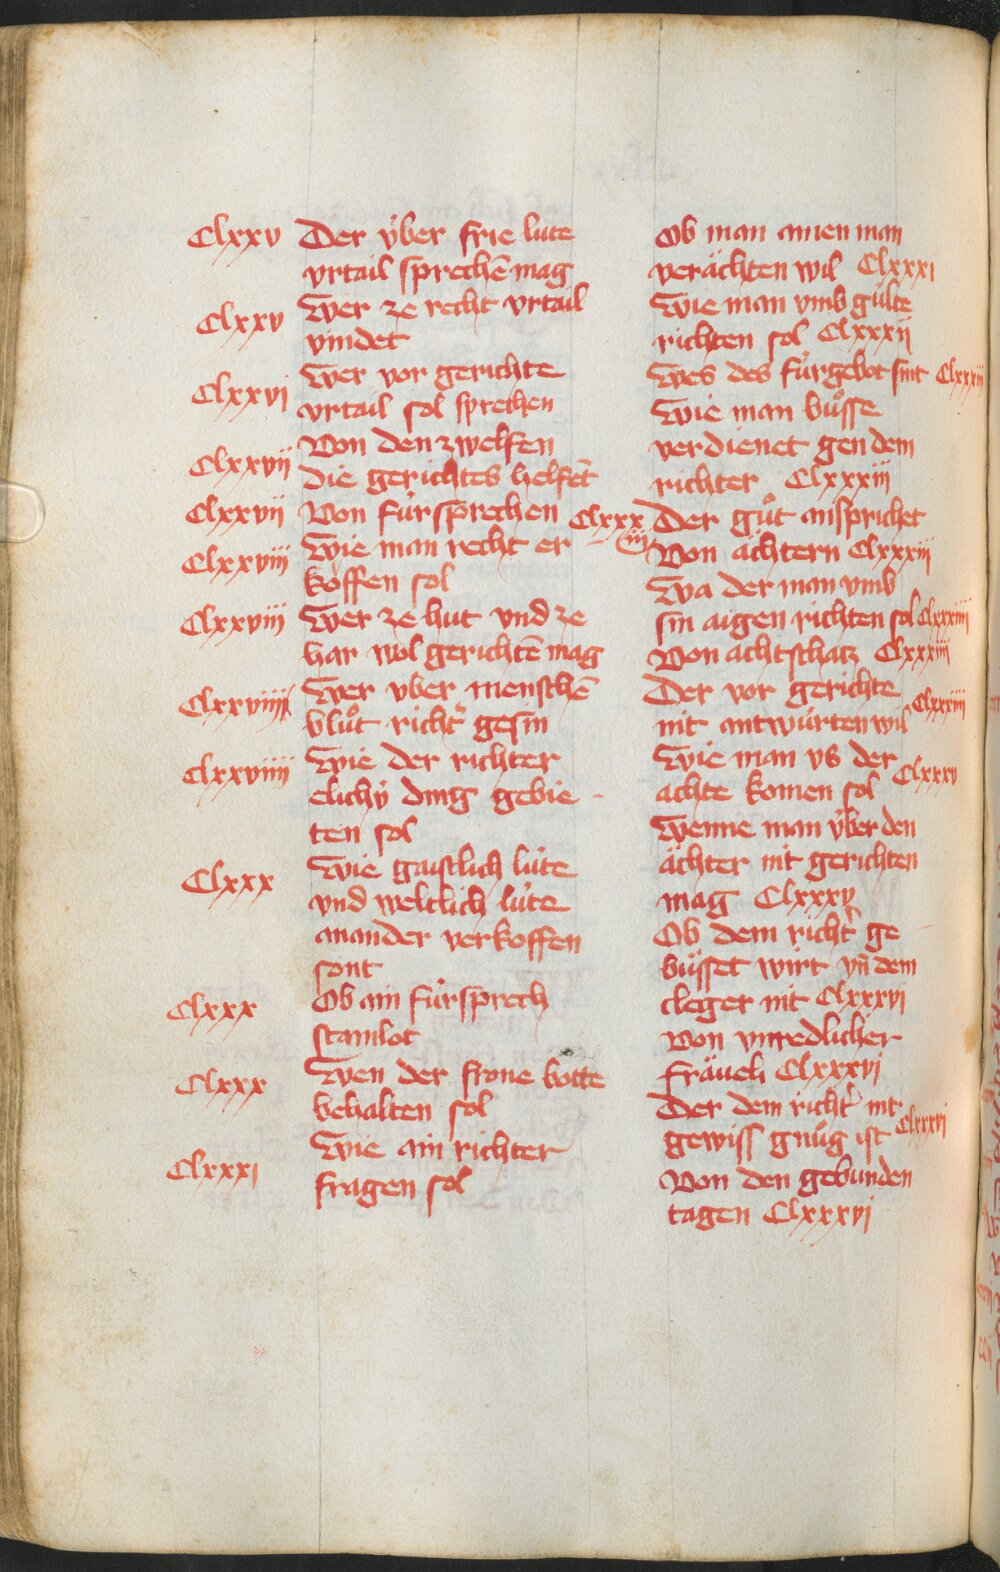 Clxxv Der ẏber frie lúte
vrtail sprechē mag
Clxxv Wer ze recht vrtail
vindet
Clxxvi Wer vor gerichte
vrtail sol sprechen
Clxxvij Von den zwelfen
die gerichtes helfēt
Clxxvij Von fúrsprechen
Clxxviij Wie man recht er
koffen sol
Clxxviij Wer ze hut vnd ze
har wol gerichtē mag
Clxxviiij Wer vber menschē
blůt richt͛ gesin
Clxxviiij Wie der richter
elichẏ ding gebie -
ten sol
Clxxx Wie gaistlich lúte
vnd weltlich lúte
ainander verkoffen
sont
Clxxx Ob ain fúrsprech
stamlot
Clxxx Wen der frone botte
behalten sol
Clxxxi Wie ain richter
fragen sol
Ob man ainen man
verächten wil Clxxxi
Wie man vmb gúlte
richten sol Clxxxij
Wes des fúrgebot sint Clxxxij
Wie man bůsse
verdienet gen dem
richter Clxxxiij
Clxxx iij Der gůt ansprichet
Von ächtern Clxxxiij
Wa der man vmb
sin aigen richten sol Clxxxiiij
Von achtschatz Clxxxiiij
Der vor gerichte
nit antwúrten wil Clxxxiiij
Wie man vs der
achte komen sol Clxxxv
Wenne man ẏber den
ächter nit gerichten
mag Clxxxv
Ob dem richt͛ ge
bússet wirt vn̄ dem
cleger nit Clxxxvi
Von vnredlicher
fräueli Clxxxvi
Der dem richt͛ nit
gewiss gnůg ist Clxxxvi
Von den gebunden
tagen Clxxxvi